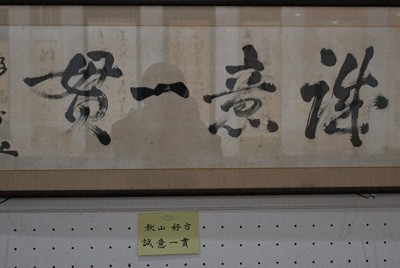 誠意一貫
秋山好古
誠意一貫